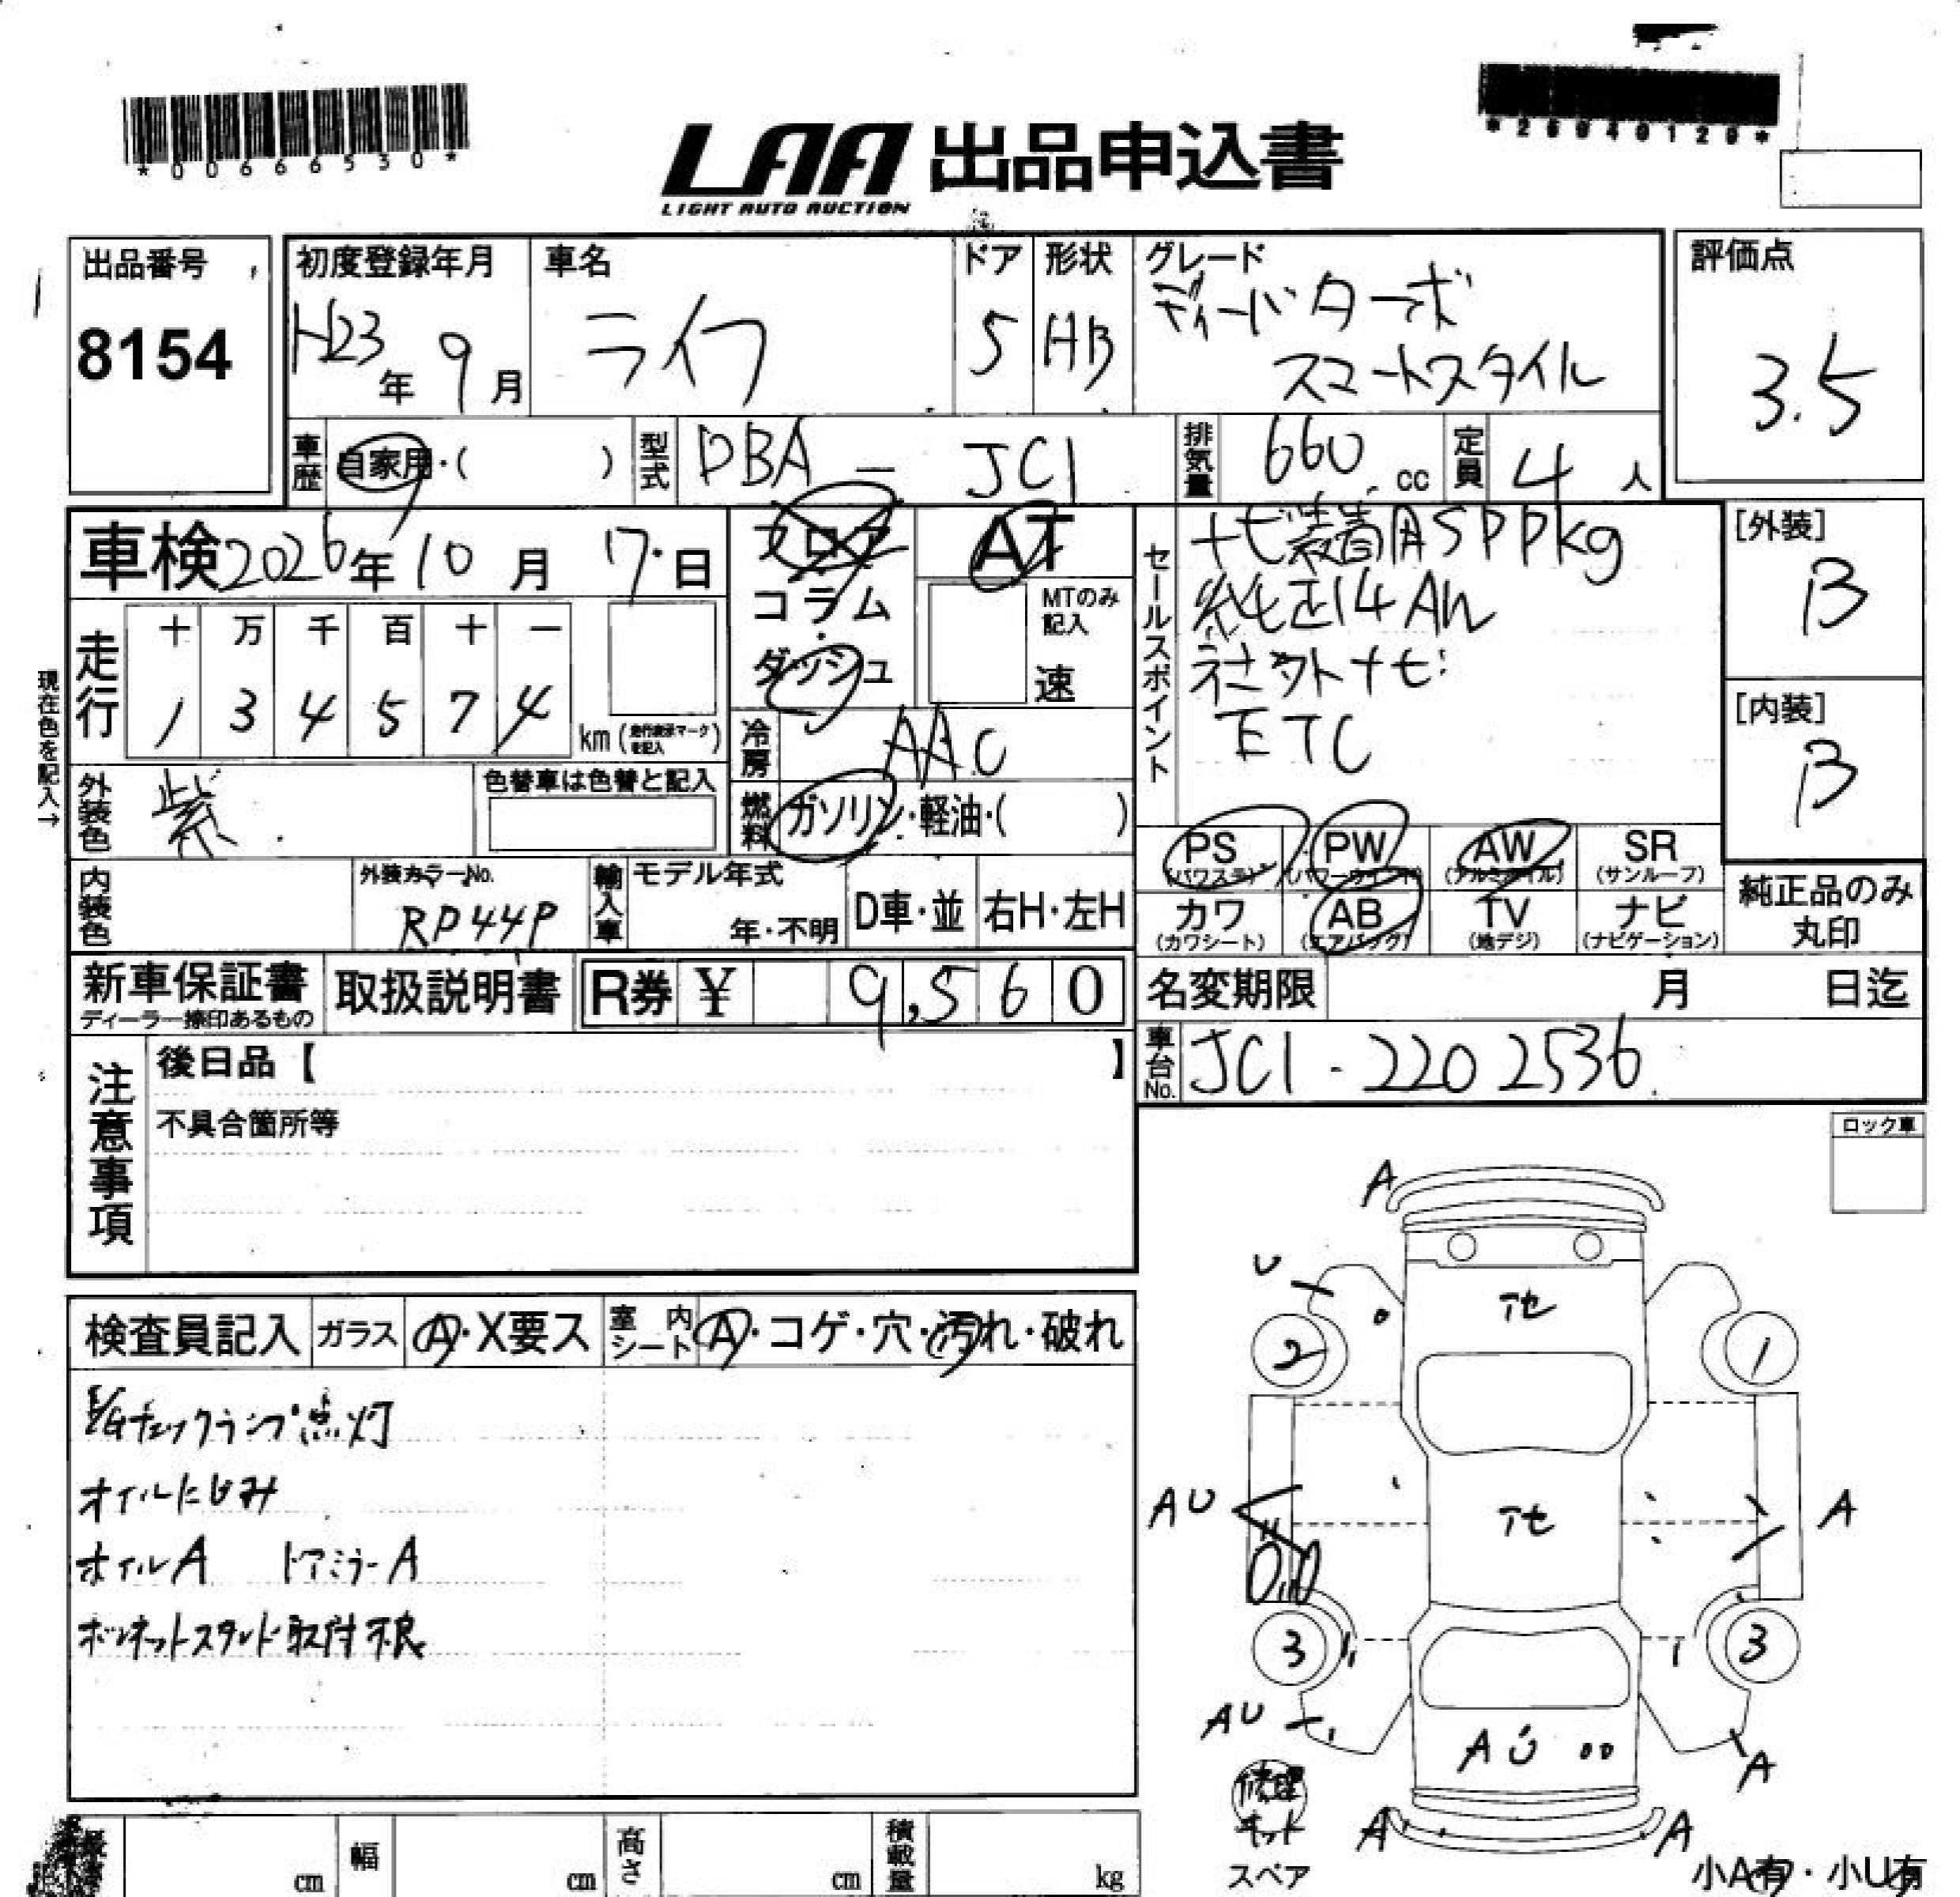 *00666530*
*26940120*
LAA 出品申込書
LIGHT AUTO AUCTION
出品番号
8154
初度登録年月
H23年 9月
車名
ライフ
ドア
5
形状
HB
グレード
ディーバターボ
スマートスタイル
評価点
3.5
車歴
自家用・( )
型式
DBA - JC1
排気量
660 cc
定員
4 人
車検 2026年 10月 17日
走行
十 万 千 百 十 一
1 3 4 5 7 4 km(走行表示マークを記入)
現在色を記入→
フロア
コラム
・
ダッシュ
AT
MTのみ記入
速
冷房
AAC
燃料
ガソリン・軽油・( )
セールスポイント
ナビ装着用SPPkg
純正14AW
社外ナビ
ETC
[外装]
B
[内装]
B
外装色
紫
色替車は色替と記入
内装色
外装カラーNo.
RP44P
輸入車
モデル年式
年・不明
D車・並
右H・左H
PS
(パワステ)
PW
(パワーウインド)
AW
(アルミホイル)
SR
(サンルーフ)
カワ
(カワシート)
AB
(エアバッグ)
TV
(地デジ)
ナビ
(ナビゲーション)
純正品のみ
丸印
新車保証書
ディーラー捺印あるもの
取扱説明書
R券 ¥ 9,560
名変期限 月 日迄
車台No.
JC1-2202536
注意事項
後日品【 】
不具合箇所等
ロック車
検査員記入
ガラス
A・X要ス
室内シート
A・コゲ・穴・汚れ・破れ
E/Gチェックランプ点灯
オイルにじみ
ホイルA ドアミラーA
ボンネットスタンド取付不良
A
U
2
1
AU
A
3
3
AU
AU
A
A
A
修理
キット
スペア
小A有・小U有
cm
幅
cm
高さ
cm
積載量
kg